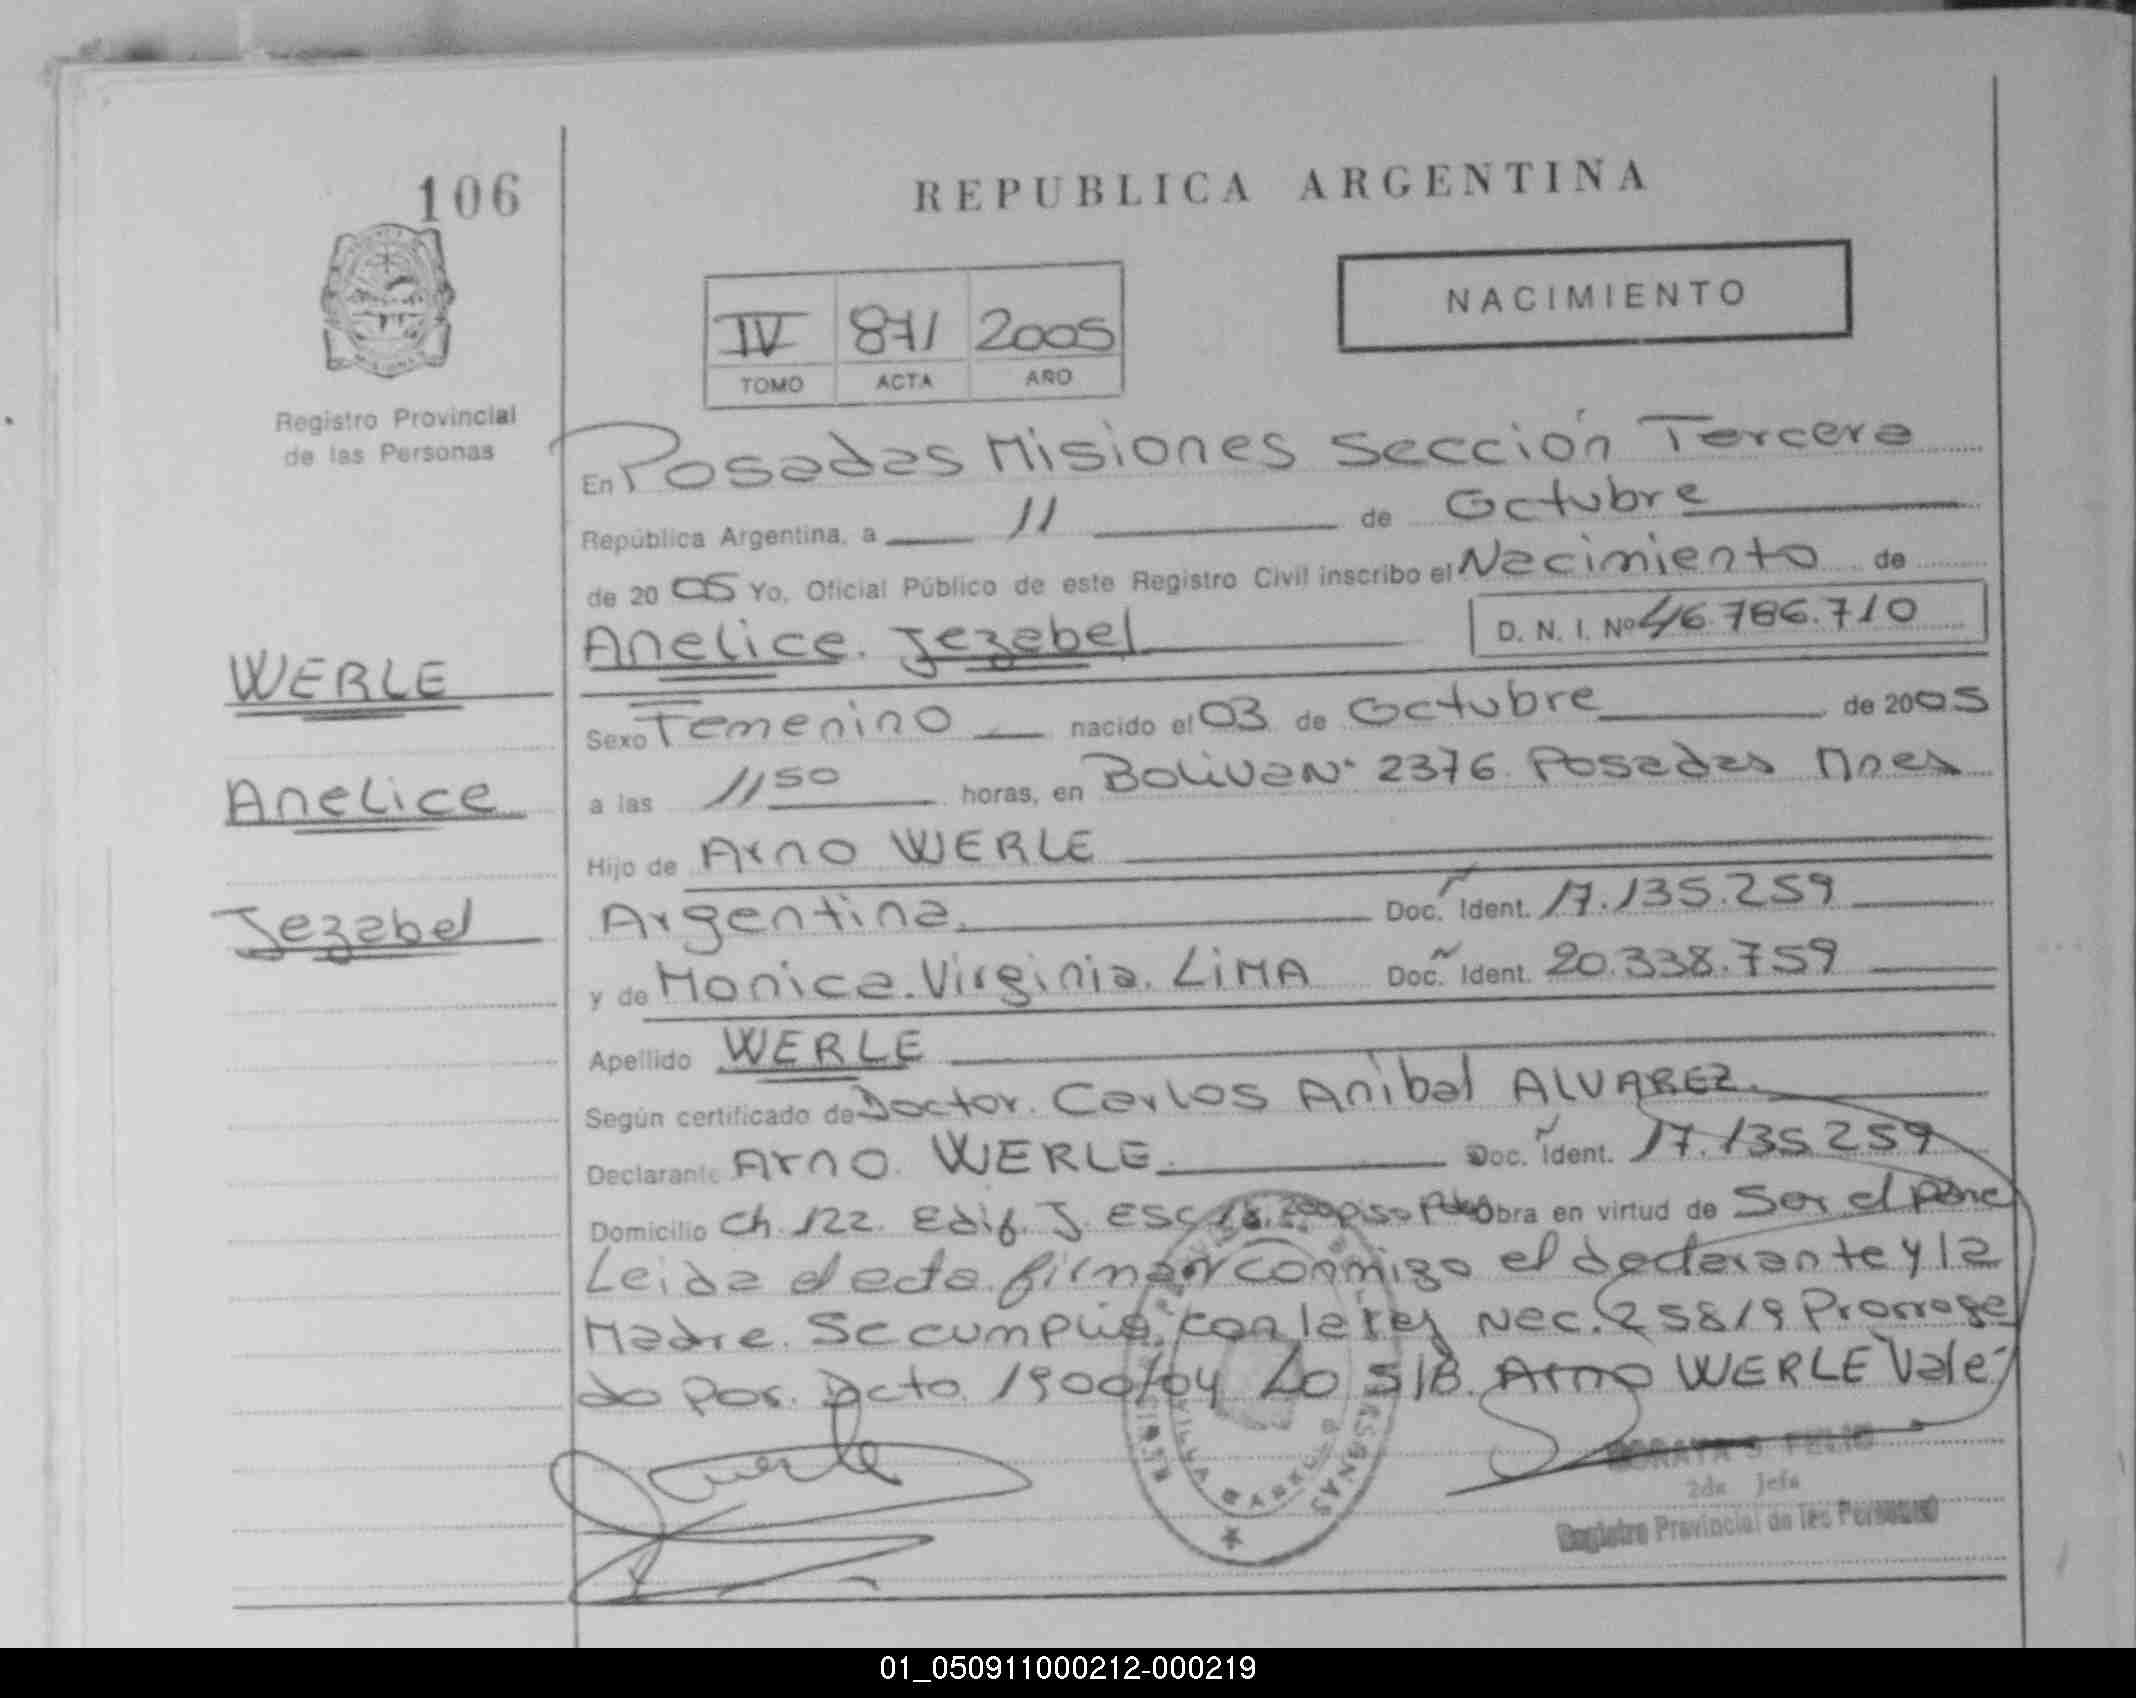 106
REPUBLICA ARGENTINA
NACIMIENTO
IV 871 2005
TOMO ACTA AÑO
Registro Provincial
de las Personas
En Posadas Misiones Sección Tercera
República Argentina, a 11 de Octubre
de 2005 Yo, Oficial Público de este Registro Civil inscribo el Nacimiento de
Anelice Jezabel D. N. I. Nº 46.786.710
WERLE
Sexo Femenino nacido el 03 de Octubre de 2005
Anelice
a las 11 50 horas, en Bolivar Nº 2376 Posadas Mnes
Hijo de Arno WERLE
Jezabel
Argentina Doc. Ident. 17.135.259
y de Monica Virginia LIMA Doc. Ident. 20.338.759
Apellido WERLE
Según certificado de Doctor Carlos Anibal ALVAREZ
Declarante Arno WERLE Doc. Ident. 17.135.259
Domicilio Ch. 122. Edif. J. Esc. piso Obra en virtud de Ser el padre
Leida el acta firman conmigo el declarante y la
Madre. Se cumplió con la ley Nac. 25819 Prorroga
do por Dcto. 1900/04 Lo S/B. Arno WERLE Vale
werle
SORAYA S. FELIO
2da Jefa
Registro Provincial de las Personas
VILLA CABELLO
01_050911000212-000219